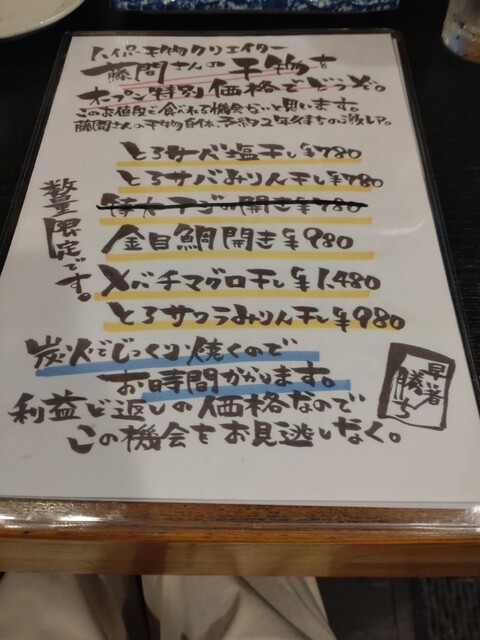 ハイパー干物クリエイター
藤間さんの干物を
オープン特別価格でどうぞ。
このお値段で食べれる機会ないと思います。
藤間さんの干物自体、予約2年待ちの激レア。
とろサーバ塩干し¥780
とろサバみりん干し¥780
特大アジの開き¥780
金目鯛開き¥980
メバチマグロ干し¥1.480
とろサワラみりん干し¥980
数量限定です。
炭火でじっくり焼くので
お時間かかります。
利益ど返しの価格なので
この機会をお見逃しなく。
早い者勝ち